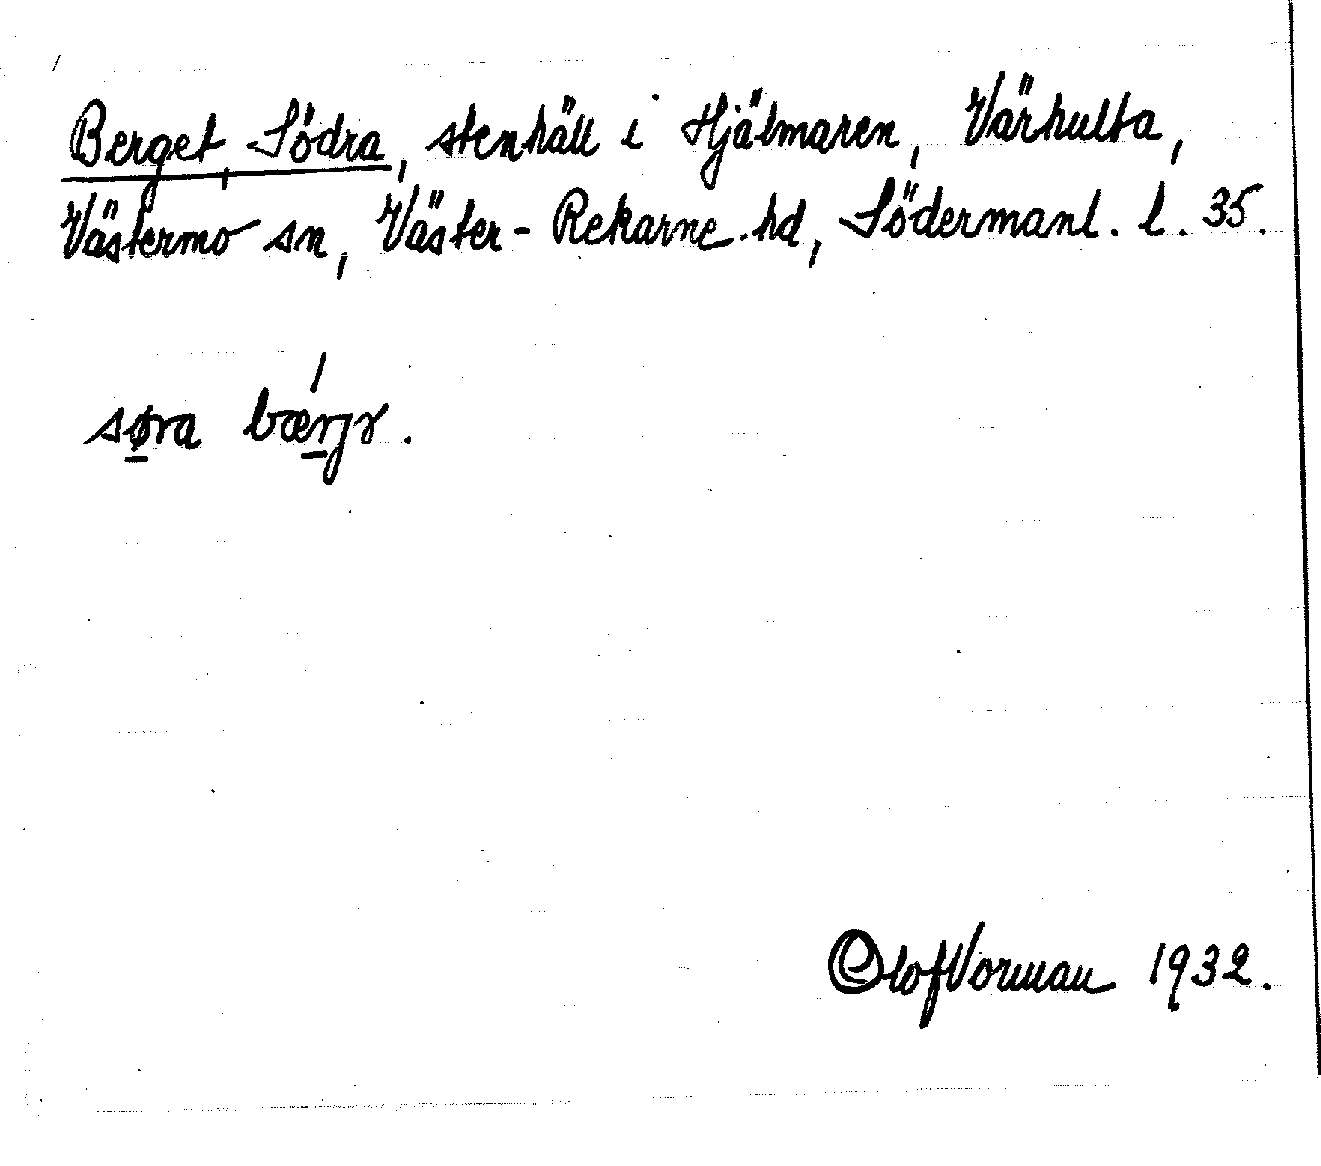 Berget, Södra, stenhäll i Hjälmaren, Värhulta,
Västermo sn, Väster-Rekarne hd, Södermanl. l. 35.
søra bærjr.
Olof Vorman 1932.